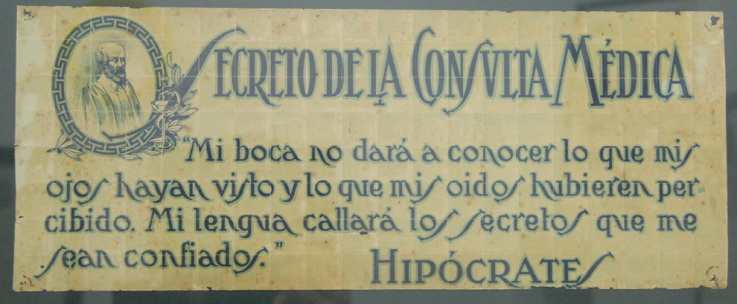 SECRETO DE LA CONSULTA MÉDICA
"Mi boca no dará a conocer lo que mis
ojos hayan visto y lo que mis oidos hubieren per
cibido. Mi lengua callará los secretos que me
sean confiados."
HIPÓCRATES